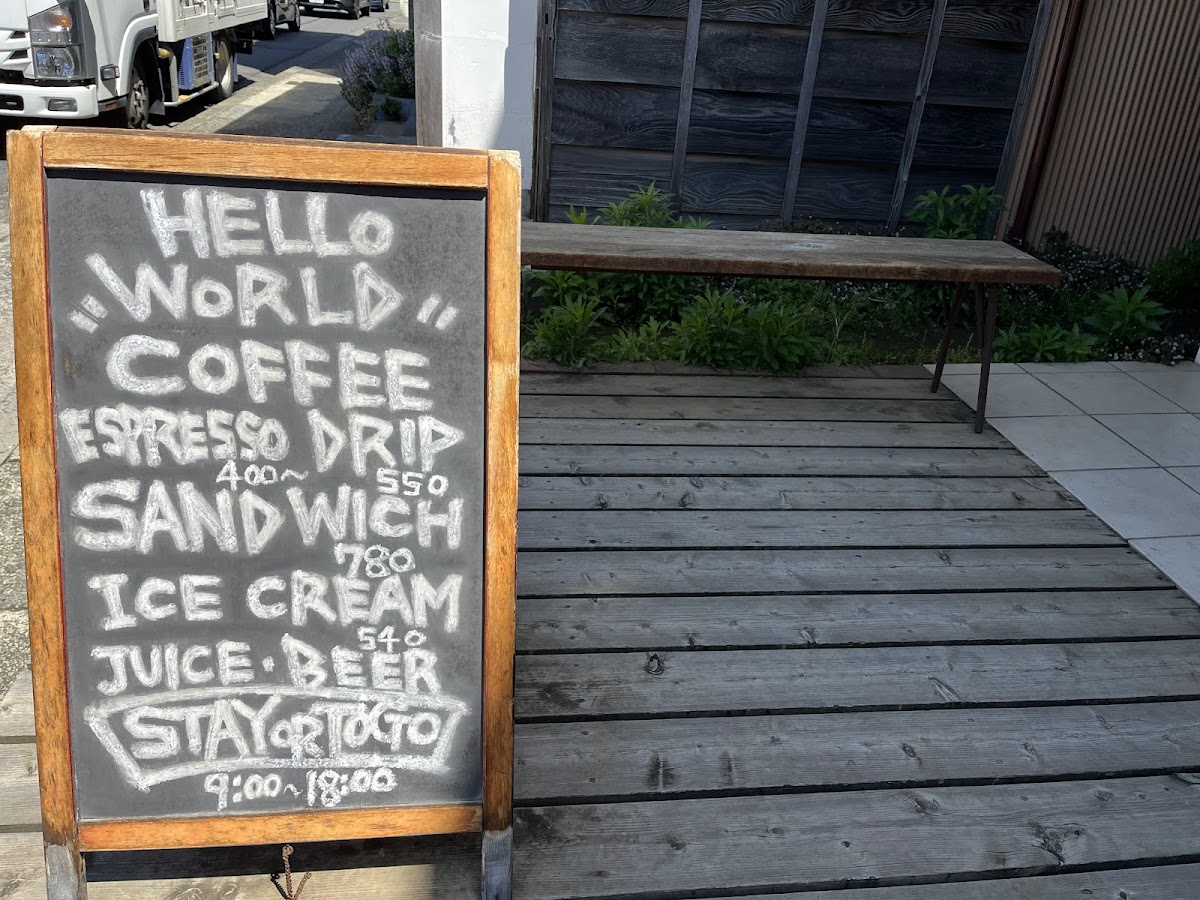 HELLO
"WORLD"
COFFEE
ESPRESSO DRIP
400~ 550
SANDWICH
780
ICE CREAM
540
JUICE・BEER
STAY OR TO GO
9:00~18:00